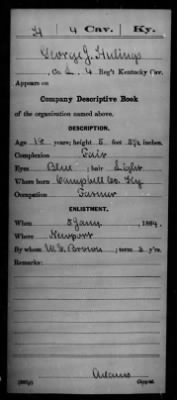 H 4 Cav. Ky.
George J. Hulings
Co. L, 4 Reg't Kentucky Cav.
Appears on
Company Descriptive Book
of the organization named above.
DESCRIPTION.
Age 18 years; height 5 feet inches.
Complexion Fair
Eyes Blue; hair Light
Where born Campbell Co. Ky
Occupation Farmer
ENLISTMENT.
When 5 Jany, 1864.
Where Newport
By whom Brown; term 3 y'rs.
Remarks:
Adams
Copyist.